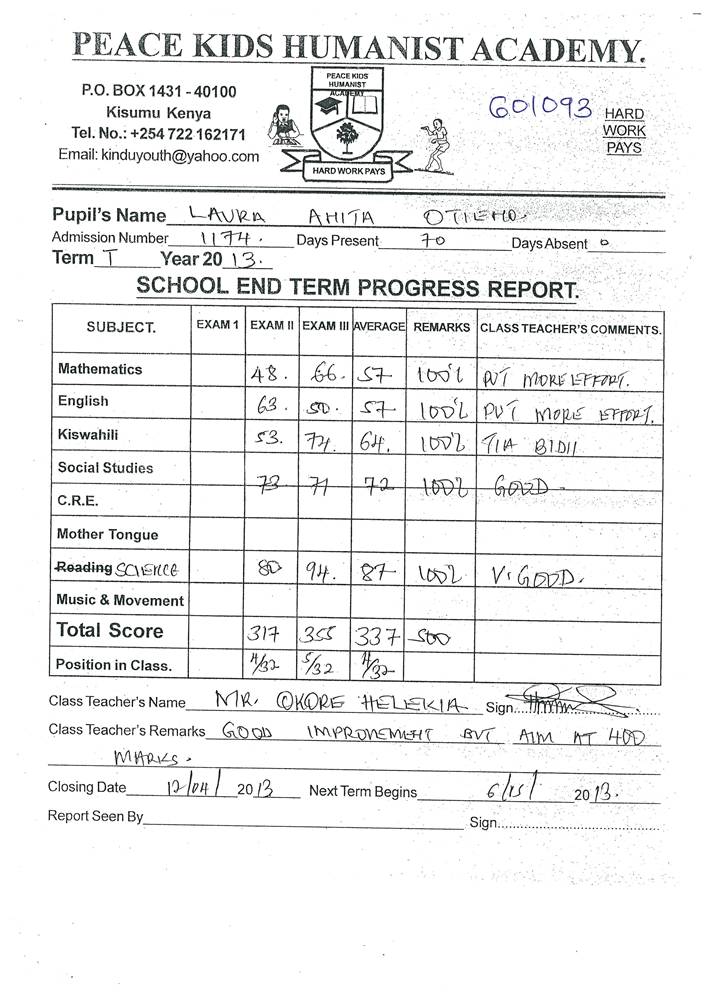 PEACE KIDS HUMANIST ACADEMY.
P.O. BOX 1431 - 40100
Kisumu Kenya
Tel. No.: +254 722 162171
Email: kinduyouth@yahoo.com
PEACE KIDS
HUMANIST
ACADEMY
HARD WORK PAYS
G01093
HARD
WORK
PAYS
Pupil's Name LAURA AHITA OTIENO.
Admission Number 1174. Days Present 70 Days Absent 0
Term I Year 2013.
SCHOOL END TERM PROGRESS REPORT.
SUBJECT. EXAM 1 EXAM II EXAM III AVERAGE REMARKS CLASS TEACHER'S COMMENTS.
Mathematics 48. 66. 57 100% PUT MORE EFFORT.
English 63. 50. 57 100% PUT MORE EFFORT.
Kiswahili 53. 74. 64. 100% TIA BIDII
Social Studies
73 71 72 100% GOOD
C.R.E.
Mother Tongue
Reading SCIENCE 80 94. 87 100% V. GOOD.
Music & Movement
Total Score 317 355 337 500
Position in Class. 4/32 5/32 4/32
Class Teacher's Name MR. OKORE HELEKIA Sign...
Class Teacher's Remarks GOOD IMPROVEMENT BUT AIM AT 400
MARKS.
Closing Date 12/04/ 2013 Next Term Begins 6/15/ 2013.
Report Seen By Sign...